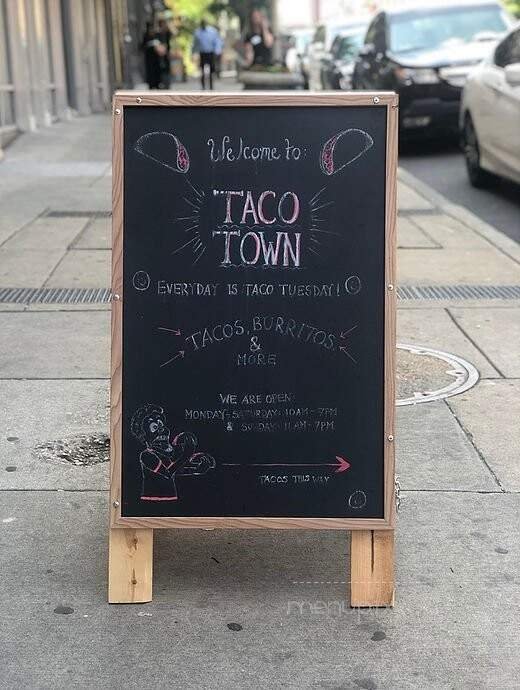 Welcome to:
TACO
TOWN
EVERYDAY IS TACO TUESDAY!
TACOS, BURRITOS,
&
MORE
WE ARE OPEN:
MONDAY-SATURDAY: 10AM-7PM
& SUNDAY: 11AM-7PM
TACOS THIS WAY